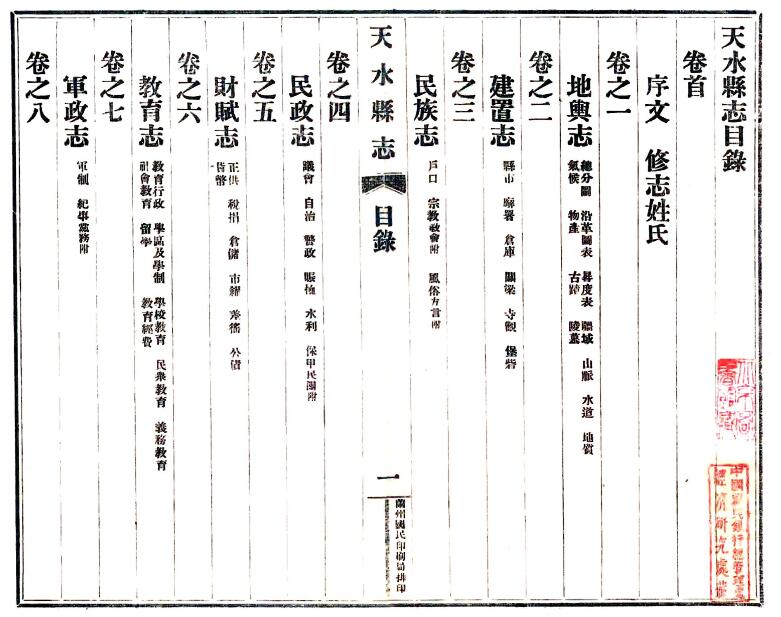 天水縣志目錄
卷首
序文 修志姓氏
卷之一
地輿志 總分圖 沿革圖表 晷度表 疆域 山脈 水道 地質
氣候 物產 古蹟 陵墓
卷之二
建置志 縣市 廨署 倉庫 關梁 寺觀 堡砦
卷之三
民族志 戶口 宗教教會附 風俗方言附
天水縣志 目錄 一 蘭州國民印刷局排印
卷之四
民政志 議會 自治 警政 賑恤 水利 保甲民團附
卷之五
財賦志 正供 稅捐 倉儲 市糴 公債
貨幣
卷之六
教育志 教育行政 學區及學制 學校教育 民眾教育 義務教育
社會教育 留學 教育經費
卷之七
軍政志 軍制 紀事黨務附
卷之八
中國農民銀行